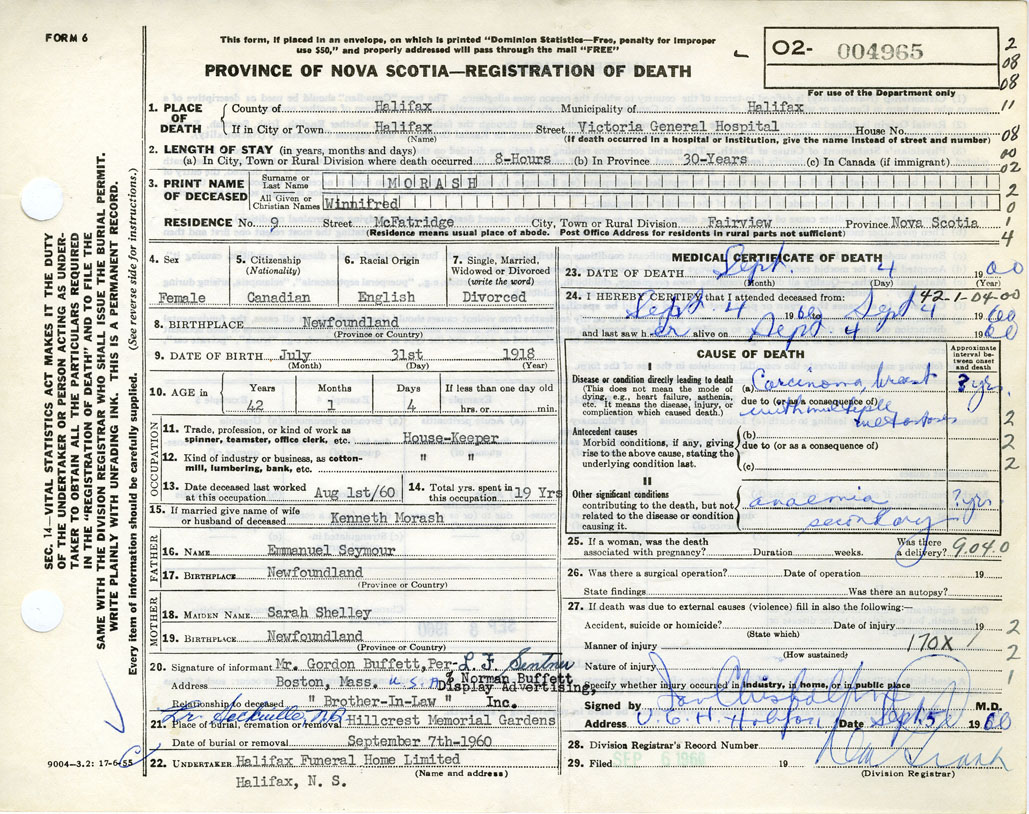 FORM 6
This form, if placed in an envelope, on which is printed "Dominion Statistics—Free, penalty for improper
use $50," and properly addressed will pass through the mail "FREE"
PROVINCE OF NOVA SCOTIA—REGISTRATION OF DEATH
O2- 004965
For use of the Department only
2
08
08
11
08
00
02
2
0
1
4
1. PLACE OF DEATH
County of Halifax Municipality of Halifax
If in City or Town Halifax Street Victoria General Hospital House No.
(Name) (If death occurred in a hospital or institution, give the name instead of street and number)
2. LENGTH OF STAY (in years, months and days)
(a) In City, Town or Rural Division where death occurred 8-Hours (b) In Province 30-Years (c) In Canada (if immigrant)
3. PRINT NAME OF DECEASED
Surname or Last Name MORASH
All Given or Christian Names Winnifred
RESIDENCE No. 9 Street McFatridge City, Town or Rural Division Fairview Province Nova Scotia
(Residence means usual place of abode. Post Office Address for residents in rural parts not sufficient)
4. Sex
Female
5. Citizenship
(Nationality)
Canadian
6. Racial Origin
English
7. Single, Married,
Widowed or Divorced
(write the word)
Divorced
8. BIRTHPLACE Newfoundland
(Province or Country)
9. DATE OF BIRTH July 31st 1918
(Month) (Day) (Year)
10. AGE in
Years Months Days If less than one day old
42 1 4 hrs. or min.
OCCUPATION
11. Trade, profession, or kind of work as
spinner, teamster, office clerk, etc. House-Keeper
12. Kind of industry or business, as cotton-
mill, lumbering, bank, etc. " "
13. Date deceased last worked
at this occupation Aug 1st/60
14. Total yrs. spent in
this occupation 19 Yrs
15. If married give name of wife
or husband of deceased Kenneth Morash
FATHER
16. NAME Emmanuel Seymour
17. BIRTHPLACE Newfoundland
(Province or Country)
MOTHER
18. MAIDEN NAME Sarah Shelley
19. BIRTHPLACE Newfoundland
(Province or Country)
20. Signature of informant Mr. Gordon Buffett, Per- L. F.
Address Boston, Mass. U.S.A. % Norman Buffett
Display Advertising,
Relationship to deceased " Brother-In-Law " Inc.
21. Place of burial, cremation or removal Hillcrest Memorial Gardens
Date of burial or removal September 7th-1960
22. UNDERTAKER Halifax Funeral Home Limited
(Name and address)
Halifax, N. S.
MEDICAL CERTIFICATE OF DEATH
23. DATE OF DEATH Sept. 4 1960
(Month) (Day) (Year)
42-1-04-00
24. I HEREBY CERTIFY that I attended deceased from:
Sept. 4 1960 to Sept 4 1960
and last saw her alive on Sept 4 1960
CAUSE OF DEATH
Approximate
interval be-
tween onset
and death
I
Disease or condition directly leading to death
(This does not mean the mode of
dying, e.g., heart failure, asthenia,
etc. It means the disease, injury, or
complication which caused death.)
(a) Carcinoma breast ? yrs.
due to (or as a consequence of)
with multiple
metastases
2
Antecedent causes
Morbid conditions, if any, giving
rise to the above cause, stating the
underlying condition last.
(b)
due to (or as a consequence of)
(c)
2
2
II
Other significant conditions
contributing to the death, but not
related to the disease or condition
causing it.
anaemia ? yrs.
secondary
25. If a woman, was the death Was there
associated with pregnancy? Duration weeks. a delivery? 9.04.0
26. Was there a surgical operation? Date of operation 19
State findings Was there an autopsy?
27. If death was due to external causes (violence) fill in also the following:—
Accident, suicide or homicide? Date of injury 19
(State which)
2
Manner of injury 170X
(How sustained)
2
Nature of injury
Specify whether injury occurred in industry, in home, or in public place
1
Signed by M.D.
Address V. G. H. Date Sept. 5 1960
28. Division Registrar's Record Number
29. Filed SEP 6 1960 19
(Division Registrar)
SEC. 14—VITAL STATISTICS ACT MAKES IT THE DUTY
OF THE UNDERTAKER OR PERSON ACTING AS UNDER-
TAKER TO OBTAIN ALL THE PARTICULARS REQUIRED
IN THE "REGISTRATION OF DEATH" AND TO FILE THE
SAME WITH THE DIVISION REGISTRAR WHO SHALL ISSUE THE BURIAL PERMIT.
WRITE PLAINLY WITH UNFADING INK. THIS IS A PERMANENT RECORD.
Every item of information should be carefully supplied. (See reverse side for instructions.)
9004-3.2: 17-6-55